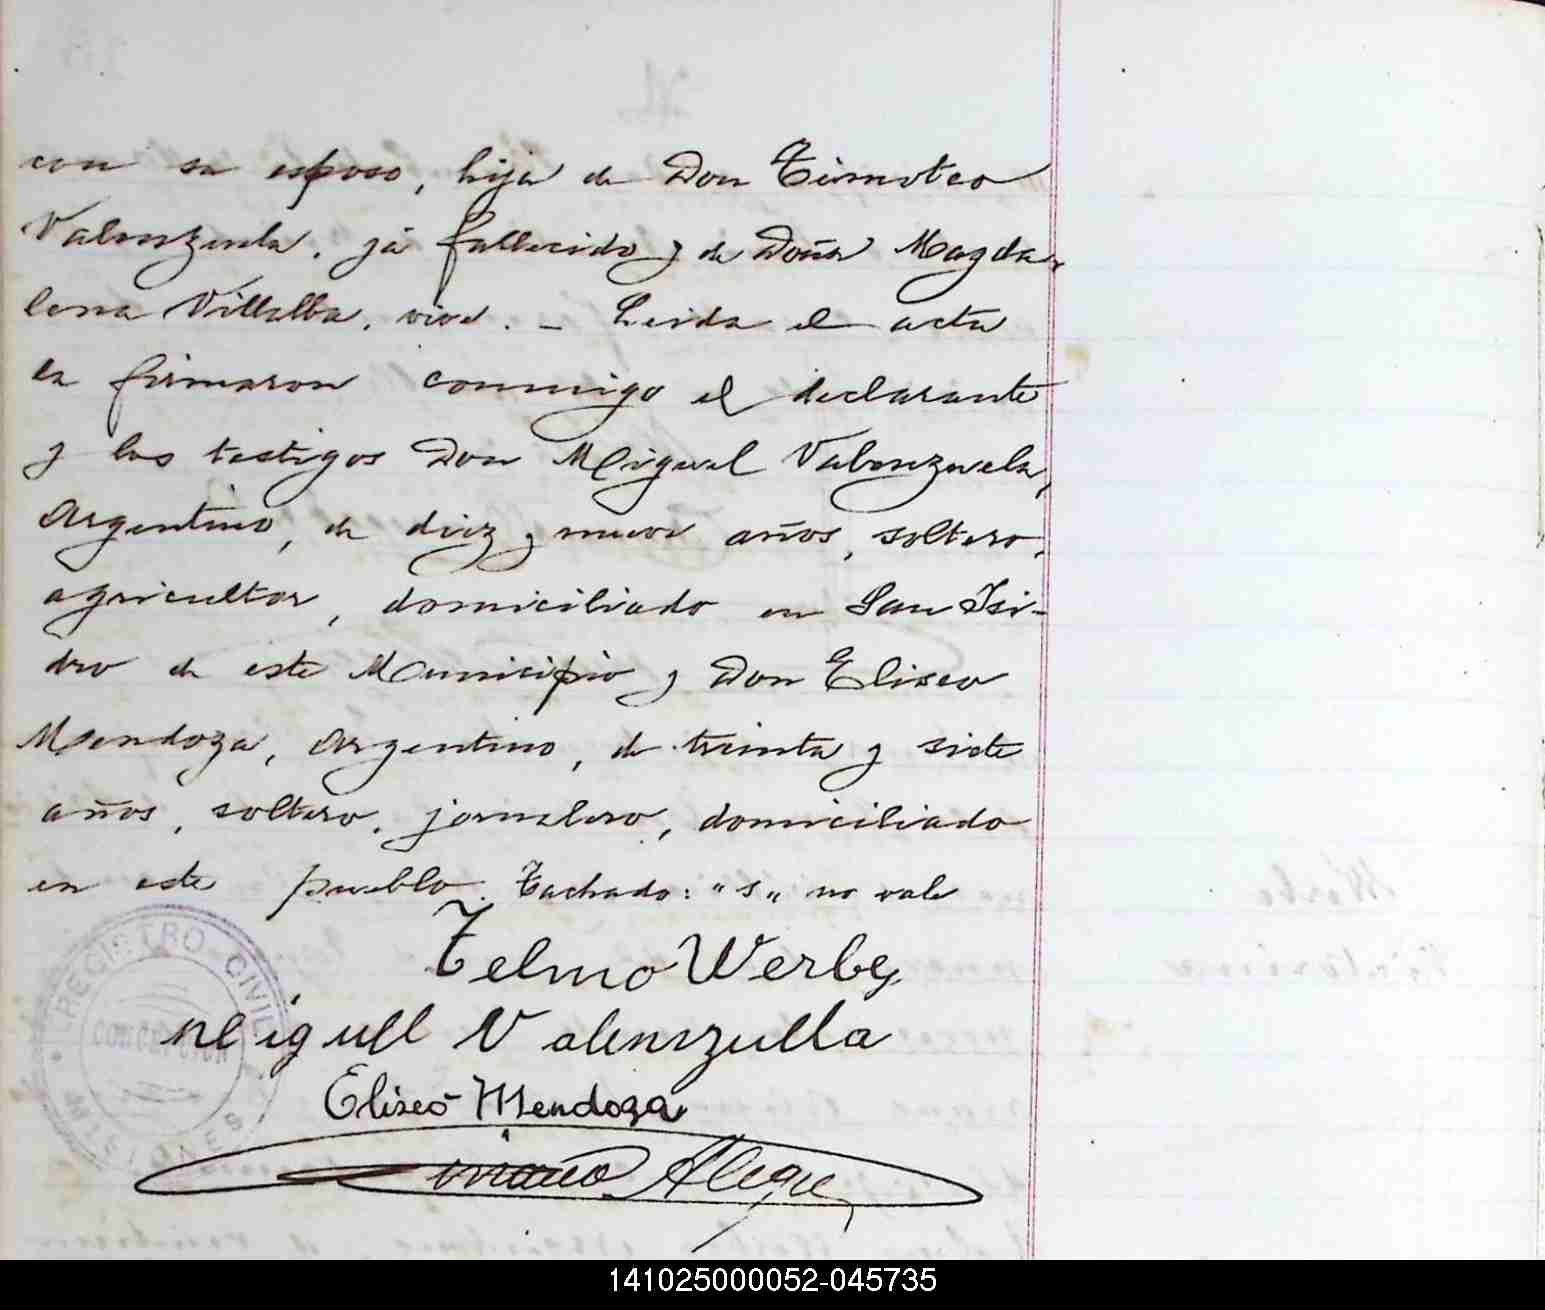 con su esposo, hija de Don Timoteo
Valenzuela, já fallecido y de Doña Magda-
lena Villalba, vive. - Leida el acta
la firmaron conmigo el declarante
y los testigos Don Miguel Valenzuela,
Argentino, de diez y nueve años, soltero,
agricultor, domiciliado en San Isi-
dro de este Municipio y Don Eliseo
Mendoza, Argentino, de treinta y siete
años, soltero, jornalero, domiciliado
en este pueblo. Tachado: "s" no vale
Telmo Werbes
Miguel Valenzuella
Eliseo Mendoza
Alegre
REGISTRO CIVIL
CONCEPCION
MISIONES
141025000052-045735